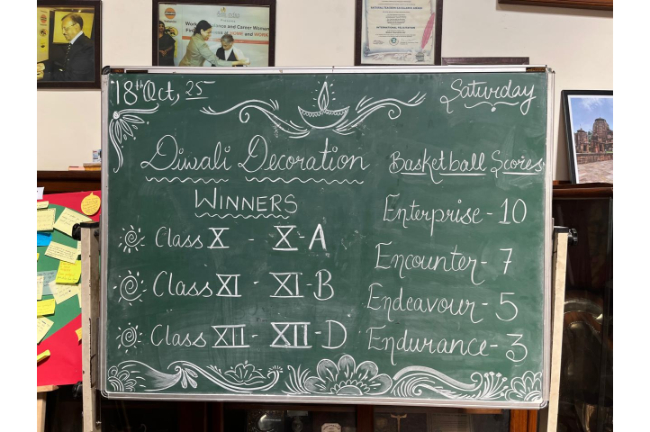 18th Oct, 25
Saturday
Diwali Decoration
WINNERS
Class X - X-A
Class XI - XI-B
Class XII - XII-D
Basketball Scores
Enterprise - 10
Encounter - 7
Endeavour - 5
Endurance - 3